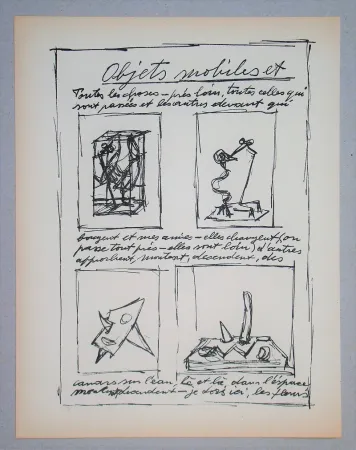 Objets mobiles et
Toutes les choses – près loin, toutes celles qui
sont passées et les autres devant qui
bougent et mes amies – elles changent (on
passe tout près – elles sont loin) d'autres
approchent, montent, descendent, des
canards sur l'eau, là et là, dans l'espace
montent descendent – je dors ici, les fleurs